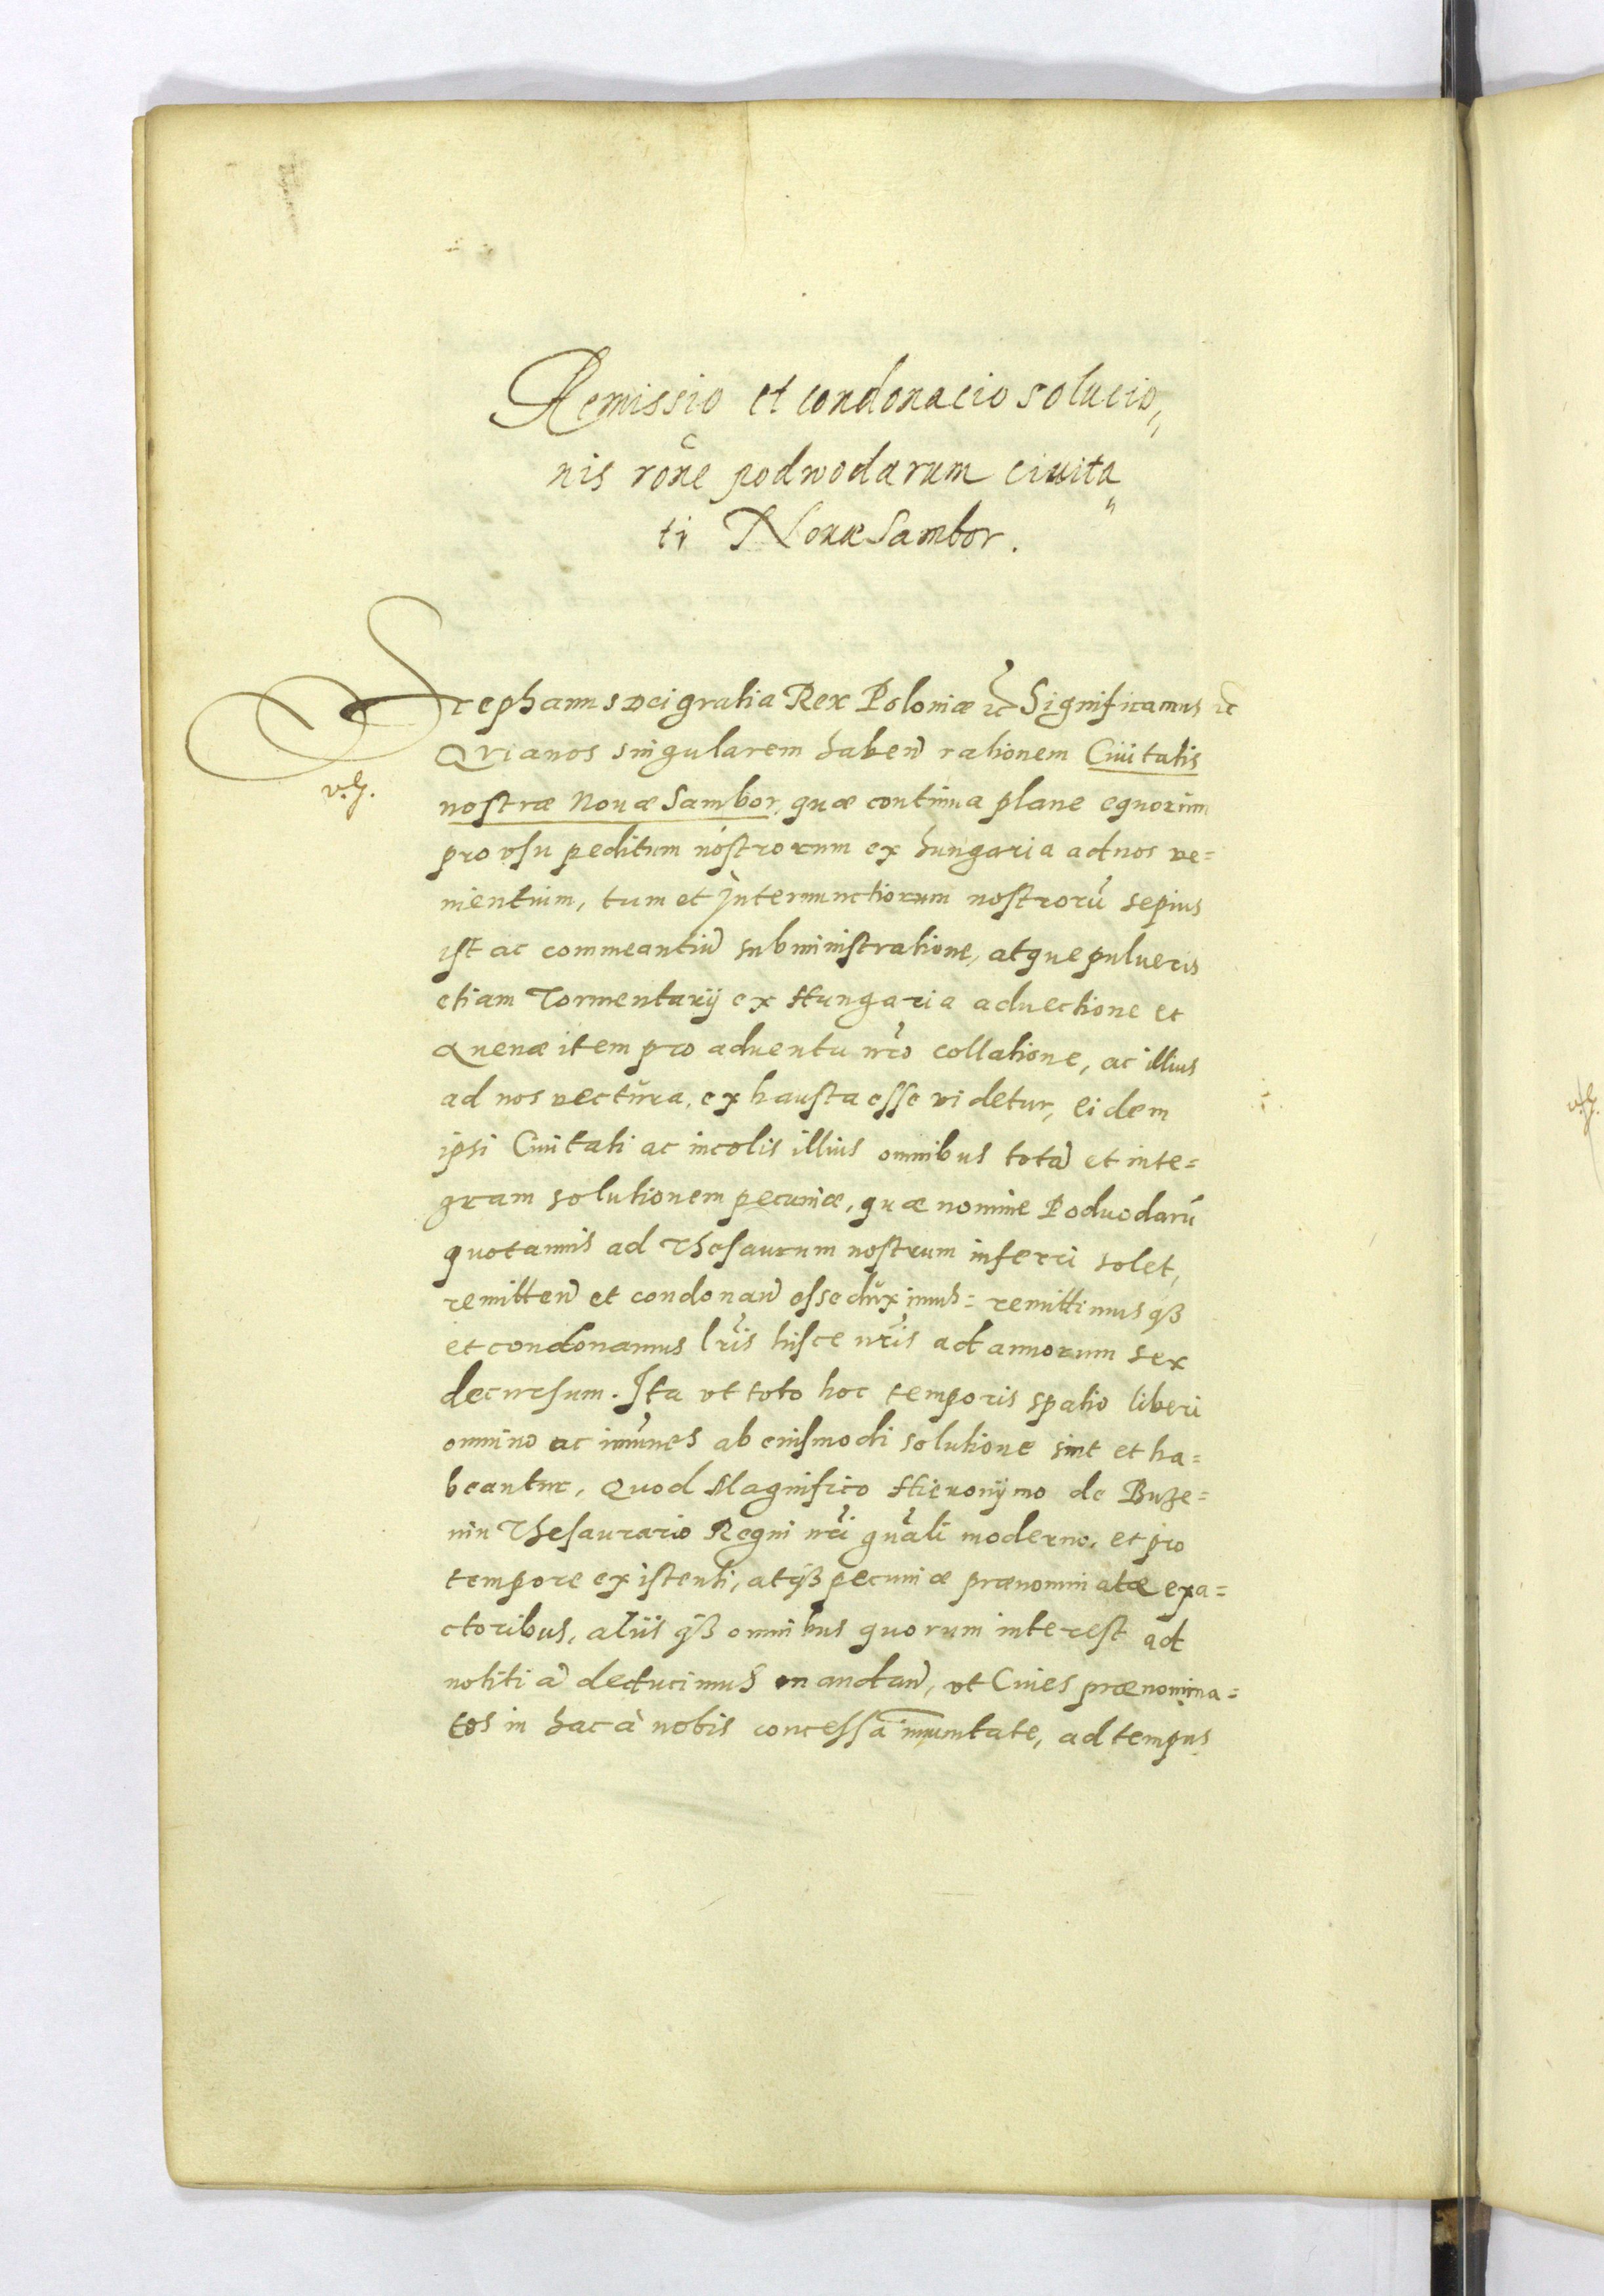 Remissio et condonacio solucio„
nis rõne podwodarum ciuita„
ti Nouæ Sambor.
Stephanus Dei gratia Rex Poloniæ ꝛc̃ Significamus ꝛc
Quia nos singularem haben̄ rationem Ciuitatis
v.g.
nostræ Nouæ Sambor, quæ continua plane equorum
pro vsu peditum nostrorum ex hungaria ad nos ve=
nientium, tum et Internunctiorum nostrorũ sepius
ist ac commeantiũ subministratione, atque pulueris
etiam Tormentarij ex Hungaria aduectione et
Auenæ item pro aduentu nr̃o collatione, ac illius
ad nos vectura, exhausta esse videtur, eidem
ipsi Ciuitati ac incolis illius omnibus totã et inte=
gram solutionem pecuniæ, quæ nomine Poduodarũ
quotannis ad Thesaurum nostrum inferri solet,
remitten̄ et condonan̄ esse duximus= remittimusqꝫ
et condonamus lr̃is hisce nr̃is ad annorum sex
decursum. Ita vt toto hoc temporis spatio liberi
omnino ac imũnes ab eiusmodi solutione sint et ha=
beantur, Quod Magnifico Hieronijmo de Buze=
nin Thesaurario Regni nr̃i gnãli moderno, et pro
tempore existenti, atqꝫ pecuniæ prænominatæ exa=
ctoribus, aliisqꝫ omnibus quorum interest ad
notitiã deducimus mandan̄, vt Ciues prænomina=
tos in hac à nobis concessa im̃unitate, ad tempus
v.g.